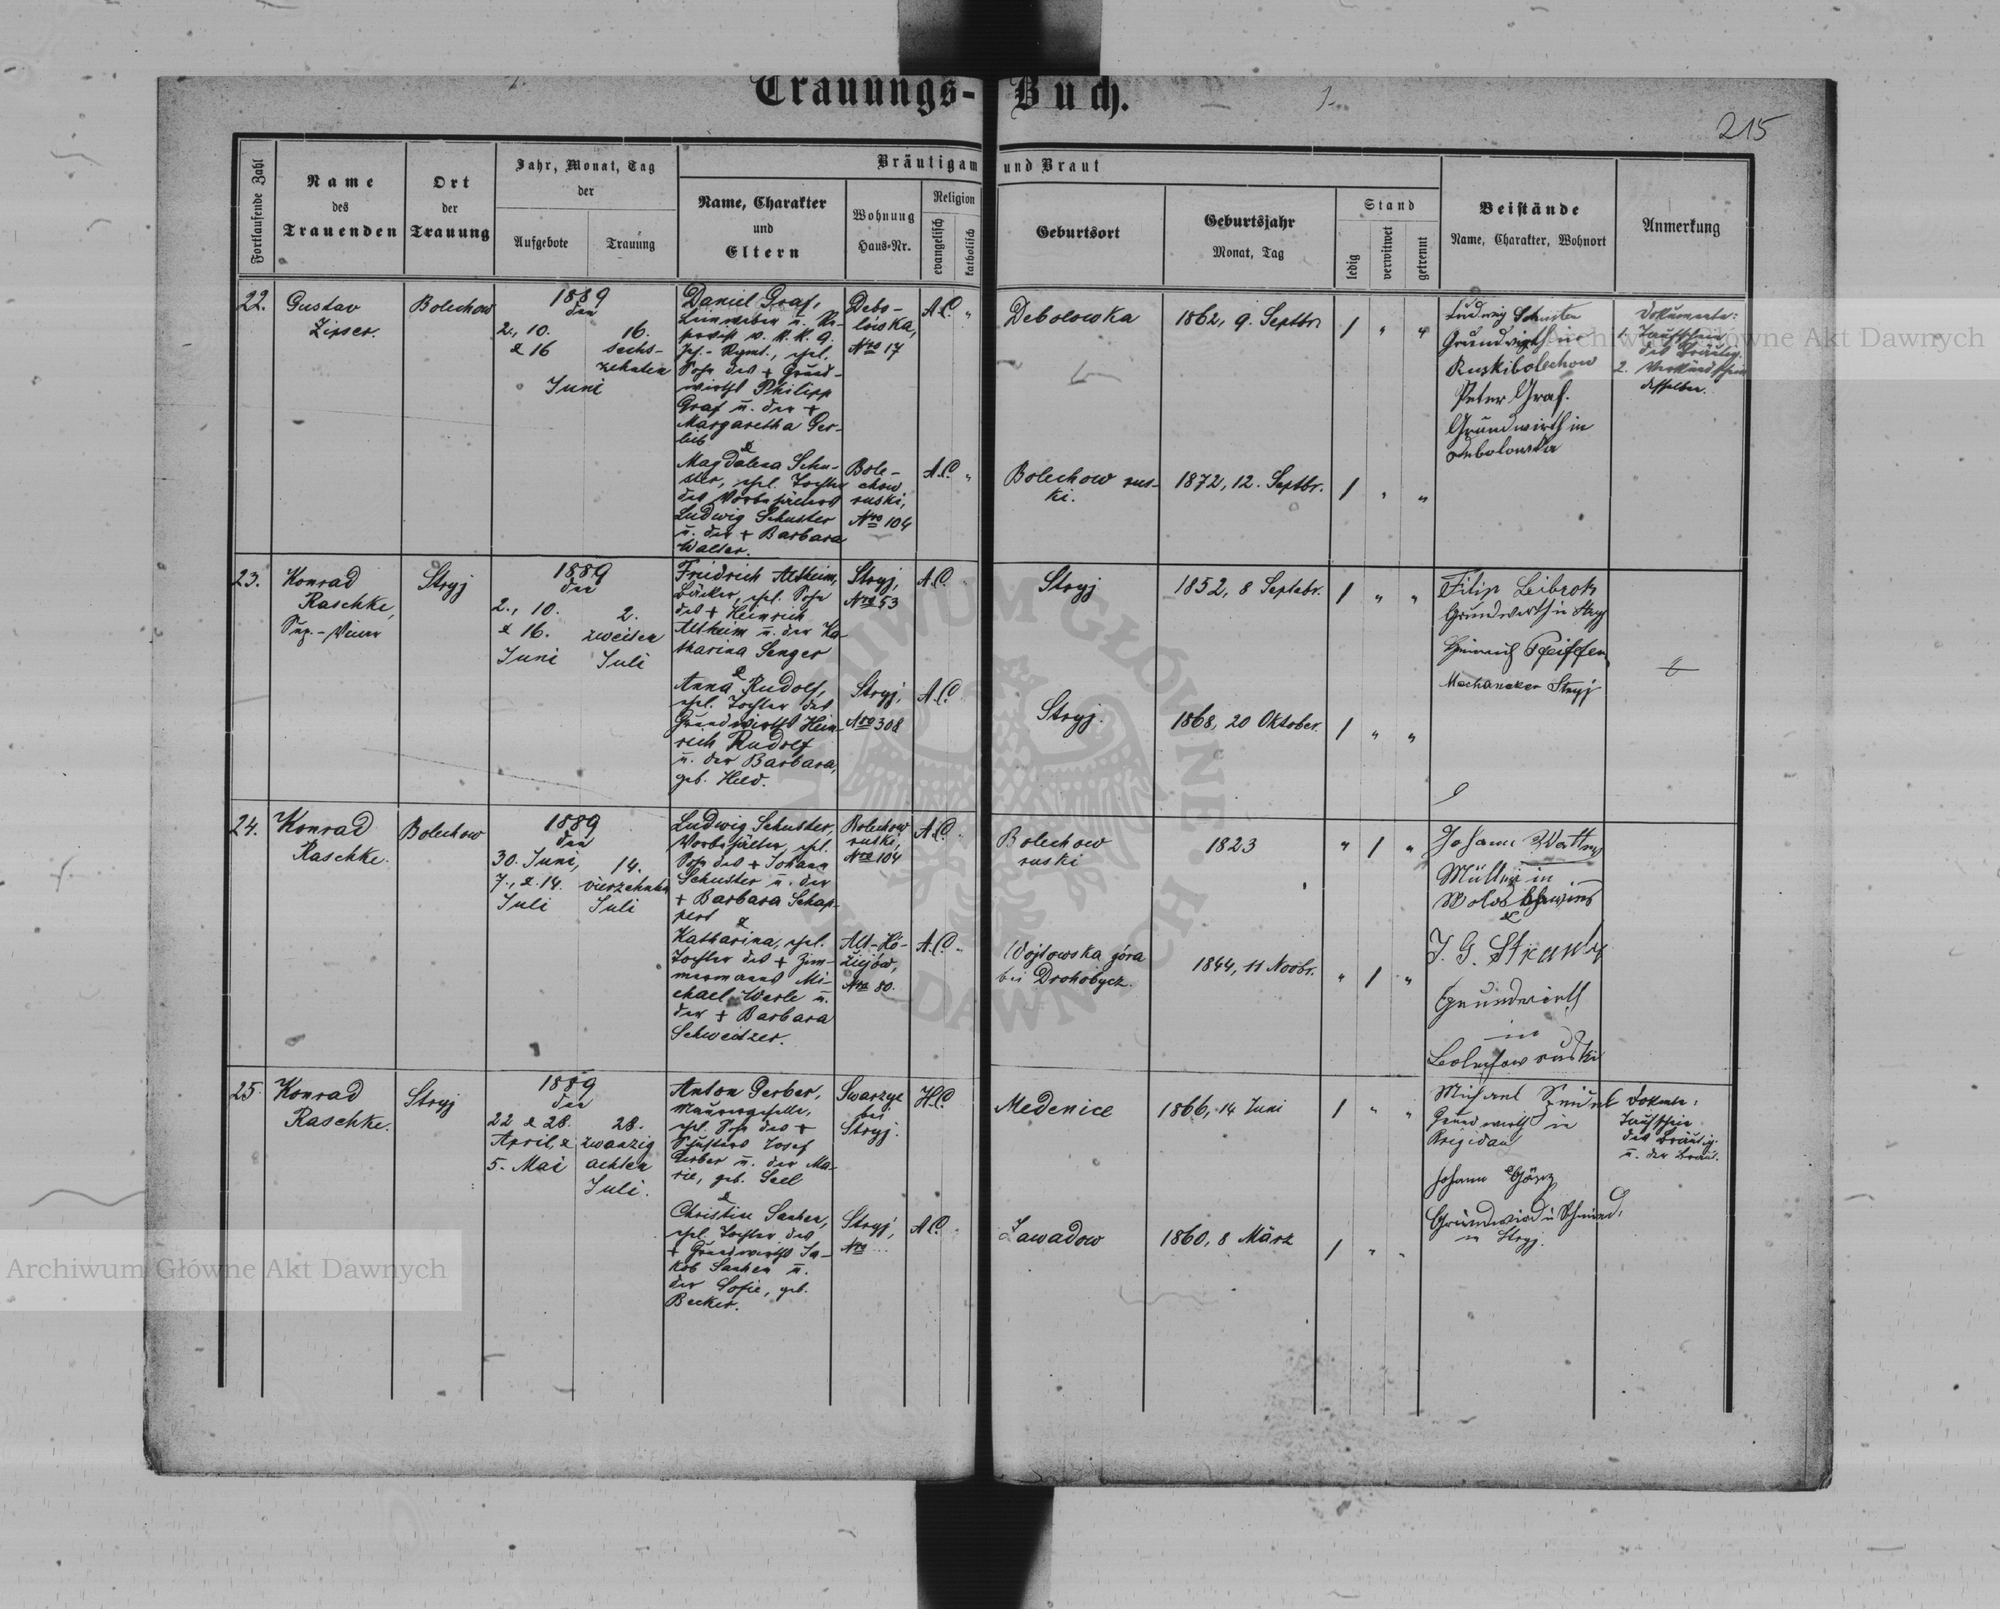 Trauungs-Buch.
215
Fortlaufende Zahl
Name
des
Trauenden
Ort
der
Trauung
Jahr, Monat, Tag
der
Aufgebote
Trauung
Bräutigam und Braut
Name, Charakter
und
Eltern
Wohnung
Haus-Nr.
Religion
evangelisch
katholisch
Geburtsort
Geburtsjahr
Monat, Tag
Stand
ledig
verwitwet
getrennt
Beistände
Name, Charakter, Wohnort
Anmerkung
22.
Gustav
Zipser.
Bolechow
1889
den
2., 10.
& 16
Juni
16.
sechs-
zehnten
Daniel Graf,
Leinweber u.
Sohn des + Grund-
wirths Philipp
Graf u. der +
Margaretha Ger-
&
Magdalena Schu-
ster, ehel. Tochter
des
Ludwig Schuster
u. der + Barbara
Walter.
Debo-
lówka,
Nro 17
Bole-
chow
ruski,
Nro 104
A.C. "
A.C. "
Debolowka
Bolechow rus-
ki.
1862, 9. Septbr.
1872, 12. Septbr.
1 " "
1 " "
Ludwig Schuster
Grundwirth in
Ruskibolechow
Peter Graf.
Grundwirth in
Debolowka
Dokumente:
1. Taufschein
des Bräutig.
2.
desselben.
23.
Konrad
Raschke,
Stryj
1889
den
2., 10.
& 16.
Juni
2.
zweiten
Juli
Friedrich Altheim,
Bäcker, ehel. Sohn
des + Heinrich
Altheim u. der Ka-
tharina Senger
&
Anna Rudolf,
ehel. Tochter des
Grundwirths Hein-
rich Rudolf
u. der Barbara,
geb. Held.
Stryj,
Nro 53
Stryj,
Nro 308
A.C.
A.C.
Stryj
Stryj.
1852, 8 Septebr.
1868, 20 Oktober.
1 " "
1 " "
Filip Leibrok
Grundwirth in Stryj
Heinrich Pfeiffer,
Mechaneker Stryj
24.
Konrad
Raschke.
Bolechow
1889
den
30. Juni,
7., & 14.
Juli
14.
vierzehnten
Juli
Ludwig Schuster,
ehel.
Sohn des + Johann
Schuster u. der
+ Barbara Schap-
pert
&
Katharina, ehel.
Tochter des + Zim-
mermanns Mi-
chael Werle u.
der + Barbara
Schweitzer.
Bolechow
ruski,
Nro 104
Alt-Ko-
ziejów,
Nro 80.
A.C.
A.C. "
Bolechow
ruski
Wojtowska góra
bei Drohobycz.
1823
1844, 11 Novbr.
" 1 "
" 1 "
Johann
Müller in
&
J. G.
Grundwirth
in
Bolechow ruski
25
Konrad
Raschke.
Stryj
1889
den
22 & 28.
April, &
5. Mai
28.
zwanzig
achten
Juli.
Anton Gerber,
Maurergeselle,
ehel. Sohn des +
Schusters Josef
Gerber u. der Ma-
rie, geb. Seel
&
Christine Sacher,
ehel. Tochter des
+ Grundwirths Ja-
kob Sacher u.
der Sofie, geb.
Becker.
bei
Stryj.
Stryj,
Nro ...
H.C.
A.C.
Medenice
Zawadow
1866, 14 Juni
1860, 8 März
1 " "
1 " "
Michael
Grundwirth in
Brigidau
Johann
Grundwird u Schmied,
in Stryj.
Dokumte:
Taufschein
des Bräutig.
u. der Braut.
Archiwum Główne Akt Dawnych
Archiwum Główne Akt Dawnych
ARCHIWUM GŁÓWNE AKT DAWNYCH